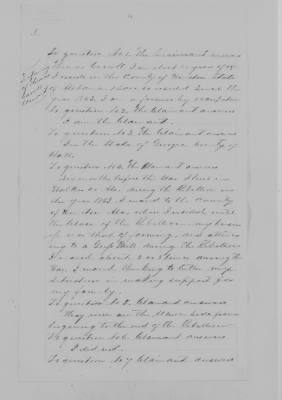 To question No 1. The Claimant answers
Thomas Carroll I am about years of age
I reside in the County of Winston State
of Alabama I have so resided since the
year 1863. I am a farmer by occupation
To question No 2 The Claimant answers
I am the Claimant.
To question No 3 The Claimant answers
In the State of Georgia County of
Hall.
To question No 4 The Claimant answers
Six months before the War I lived in
Walker Co Ala. during the Rebellion in
the year 1863 I moved to the County
of Winston Ala, where I resided until
the close of the Rebellion. my business
was that of farming, and attending
to a Grist Mill during the Rebellion
I moved about 2 or 3 times during the
War, I moved thinking to better my
situation in making support for
my family.
To question No 5, Claimant answers
They were on the Union side from
beginning to the end of the Rebellion
To question No 6 Claimant answers
I did not.
To question No 7 Claimant answered